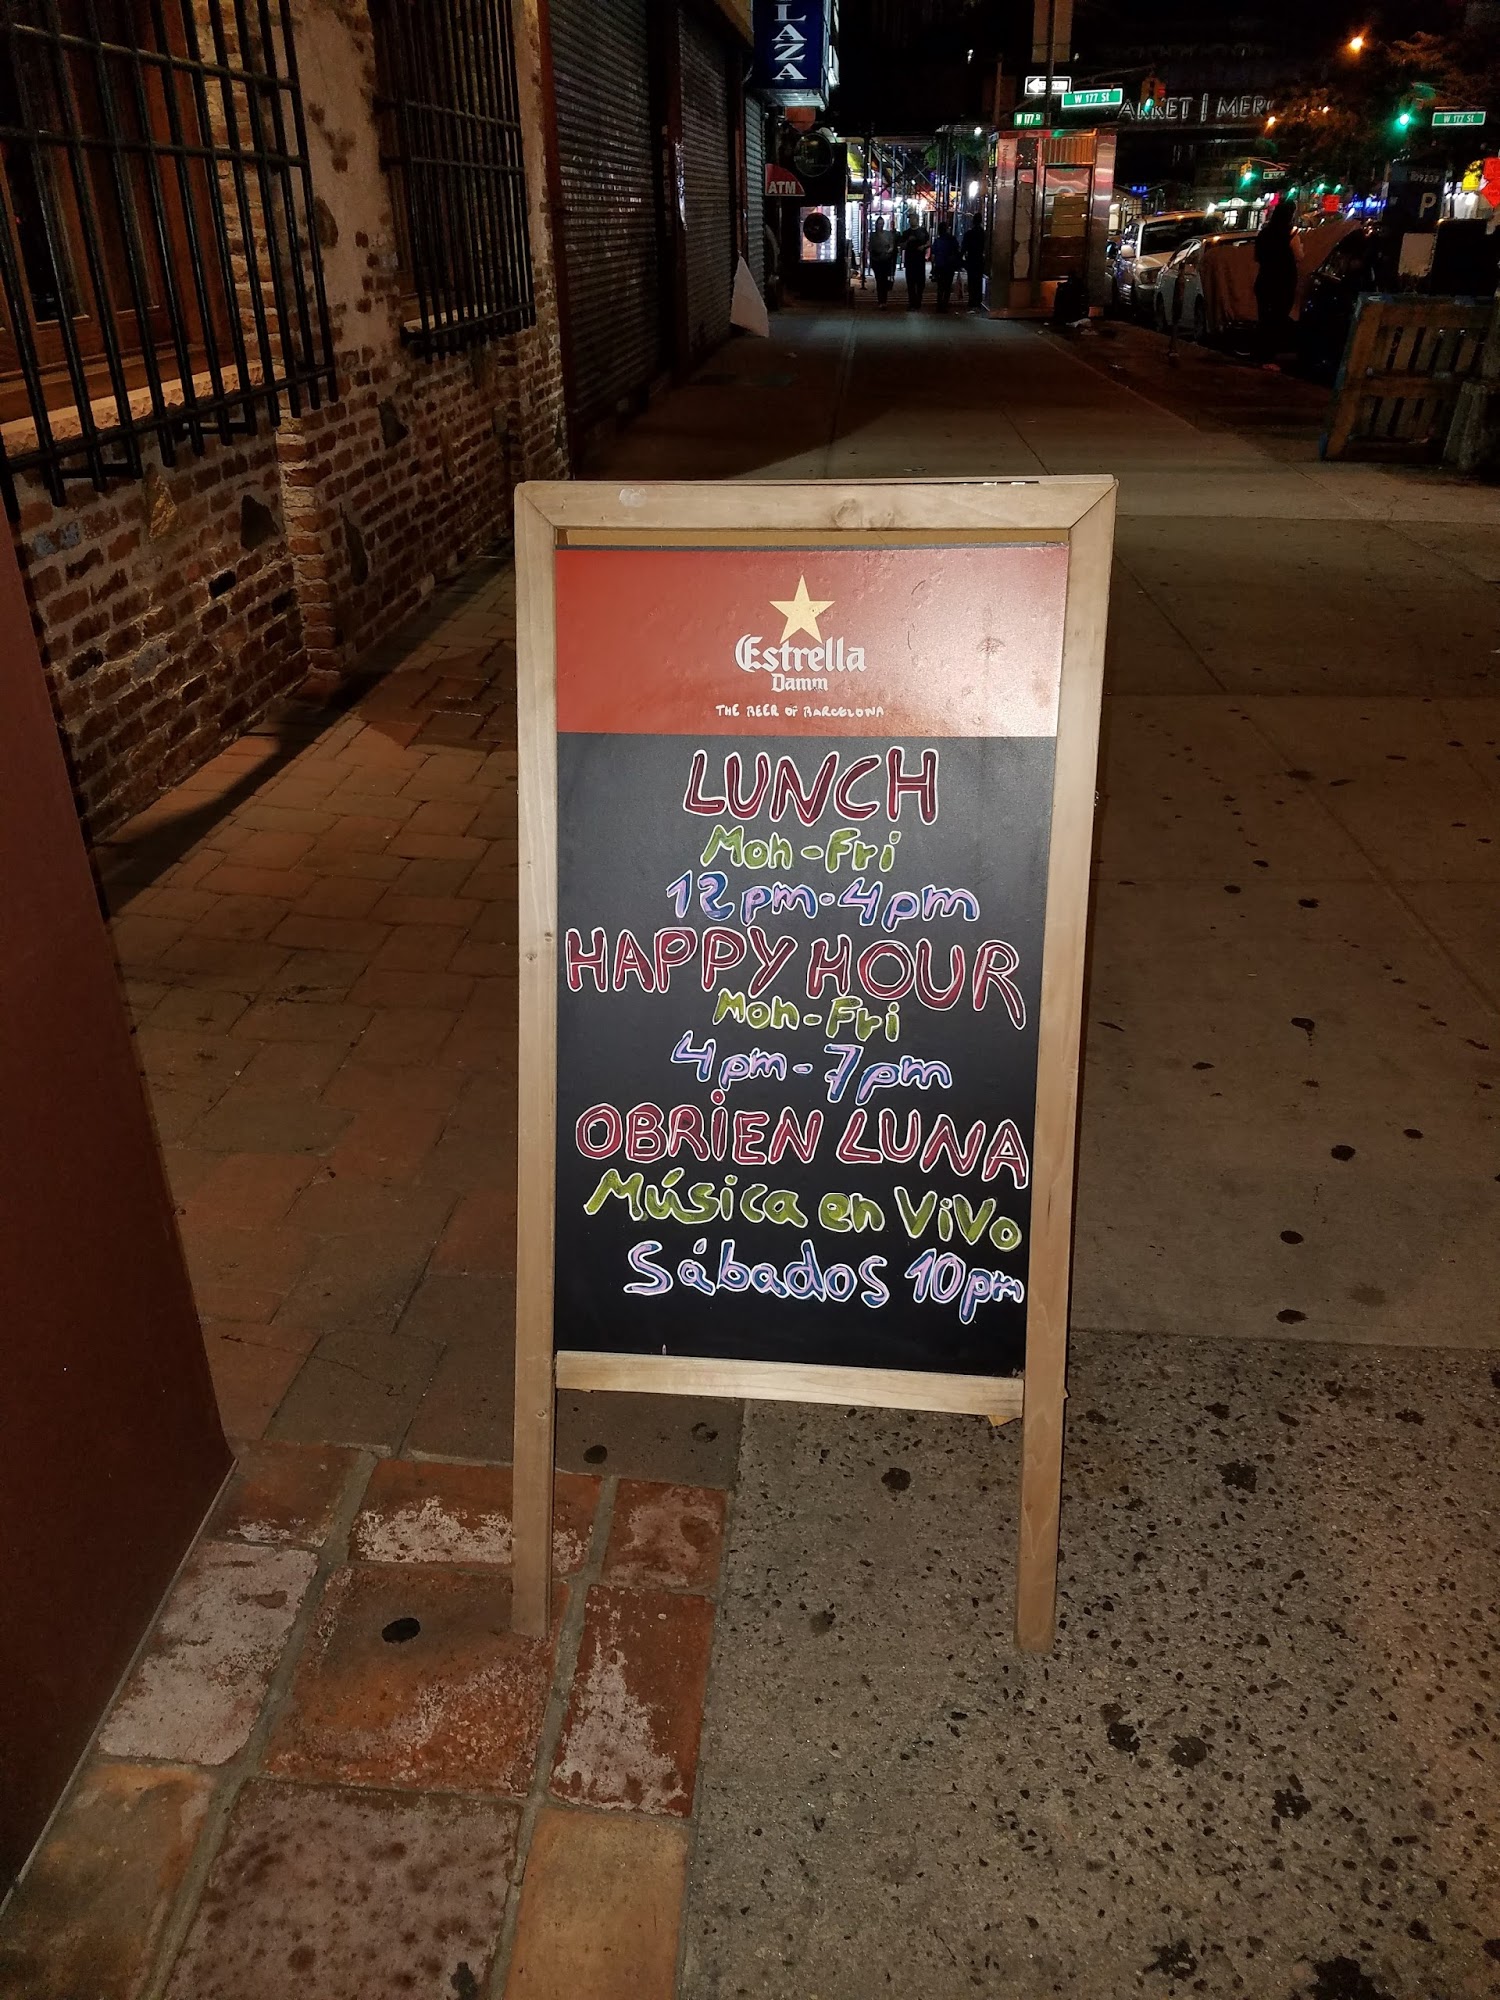 LAZA
W 177 St
W 177 St
ARKET | MERC
W 177 St
ATM
P
Estrella
Damm
THE BEER OF BARCELONA
LUNCH
Mon-Fri
12pm-4pm
HAPPY HOUR
Mon-Fri
4pm-7pm
OBRiEN LUNA
Música en ViVo
Sábados 10pm